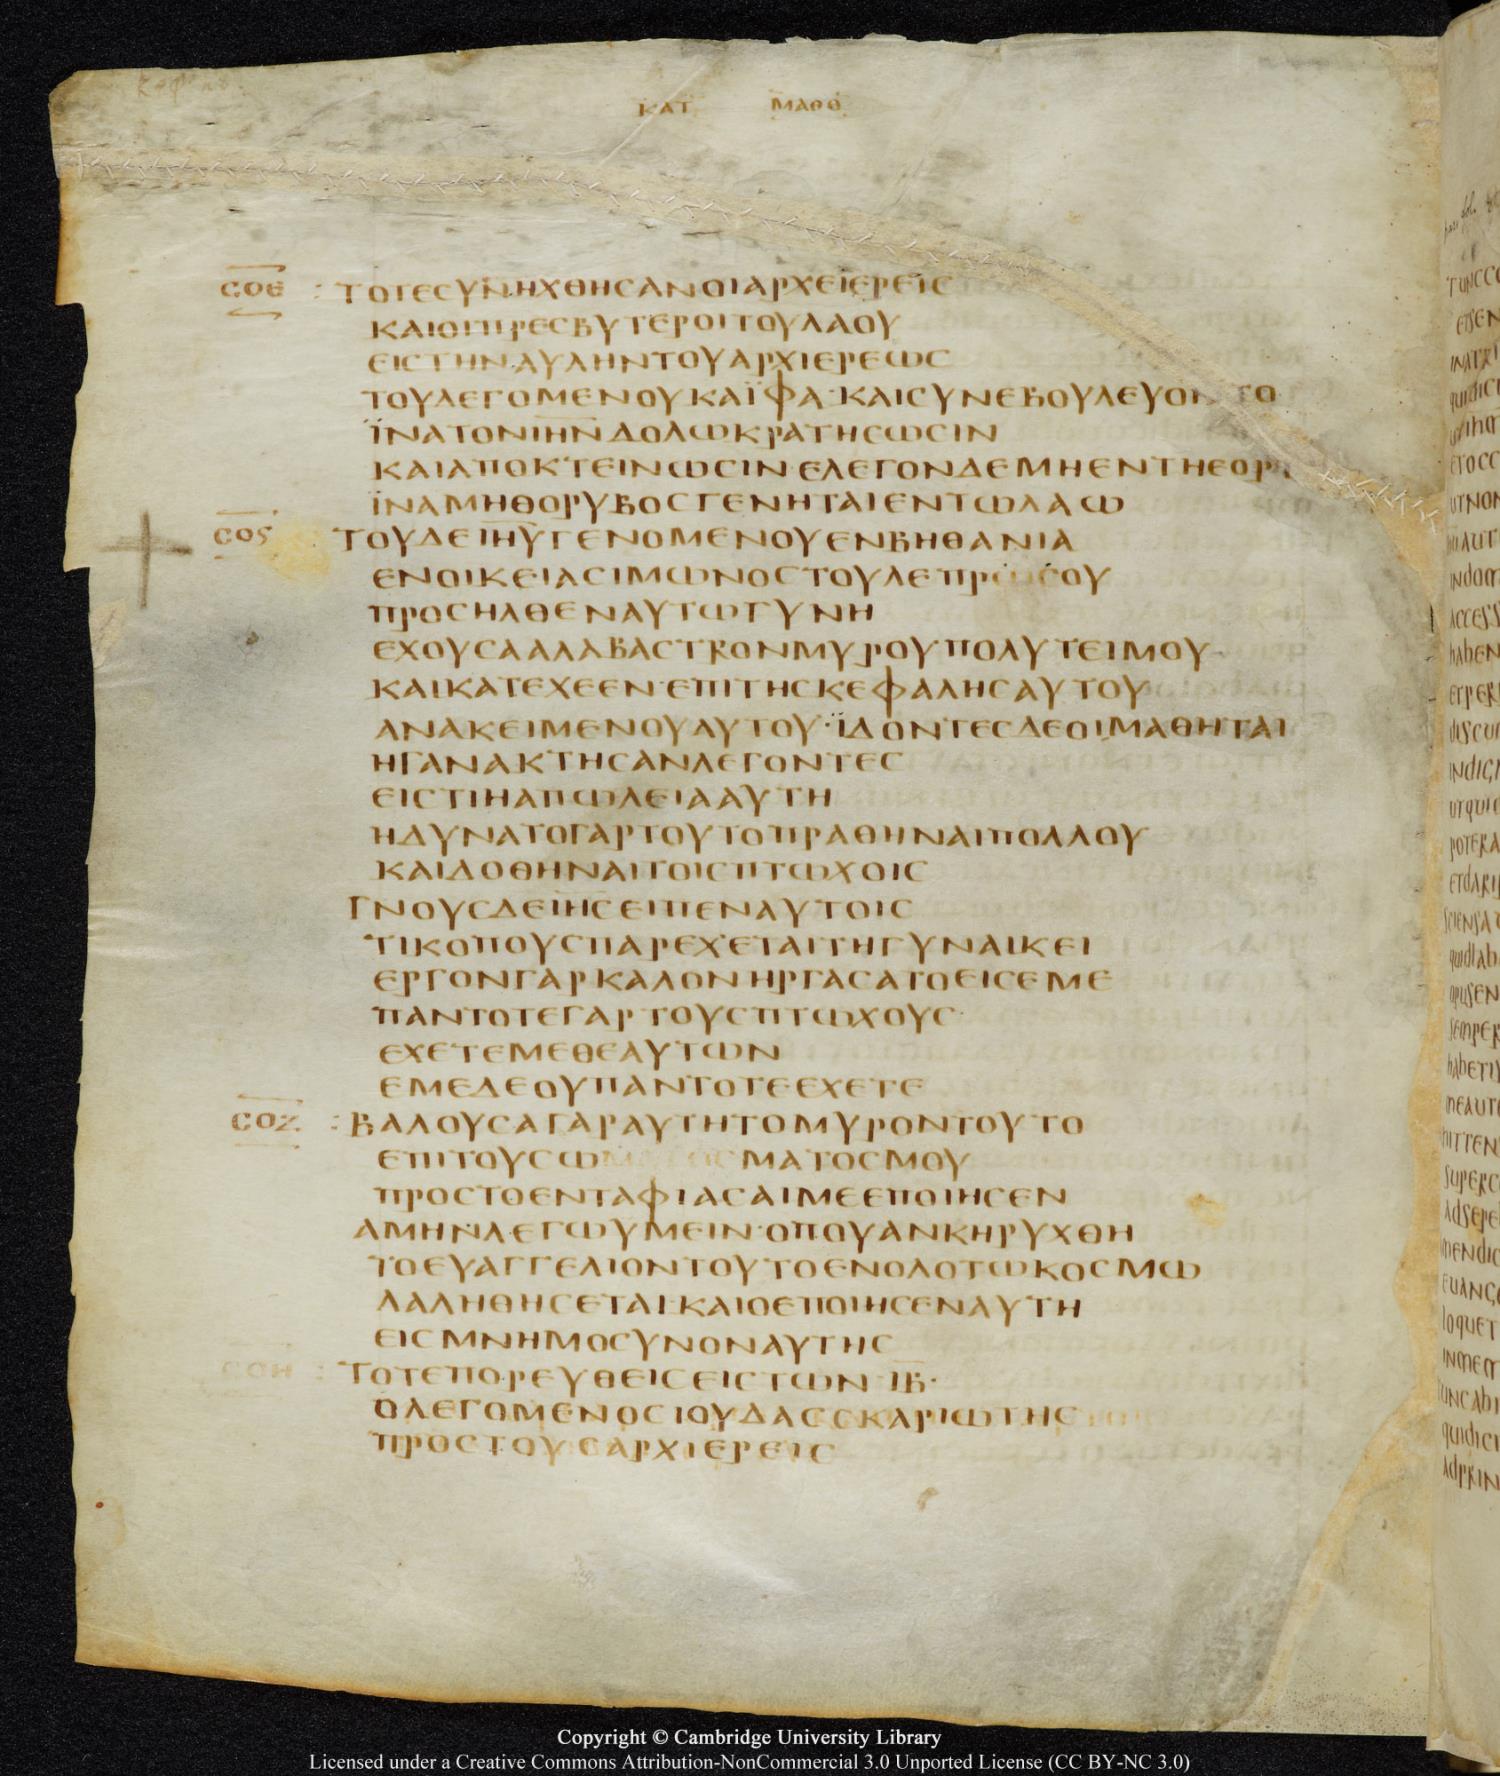 ΚΑΤ ΜΑΘΘ
ϹΟΕ : ΤΟΤΕϹΥΝΗΧΘΗϹΑΝΟΙΑΡΧΕΙΕΡΕΙϹ
ΚΑΙΟΙΠΡΕϹΒΥΤΕΡΟΙΤΟΥΛΑΟΥ
ΕΙϹΤΗΝΑΥΛΗΝΤΟΥΑΡΧΙΕΡΕΩϹ
ΤΟΥΛΕΓΟΜΕΝΟΥΚΑΪΦΑ·ΚΑΙϹΥΝΕΒΟΥΛΕΥΟΝΤΟ
ΪΝΑΤΟΝΙΗΝΔΟΛΩΚΡΑΤΗϹΩϹΙΝ
ΚΑΙΑΠΟΚΤΕΙΝΩϹΙΝ·ΕΛΕΓΟΝΔΕΜΗΕΝΤΗΕΟΡΤ
ΪΝΑΜΗΘΟΡΥΒΟϹΓΕΝΗΤΑΙΕΝΤΩΛΑΩ
ϹΟϚ ΤΟΥΔΕΙΗΥΓΕΝΟΜΕΝΟΥΕΝΒΗΘΑΝΙΑ
ΕΝΟΙΚΕΙΑϹΙΜΩΝΟϹΤΟΥΛΕΠΡΩϹΟΥ
ΠΡΟϹΗΛΘΕΝΑΥΤΩΓΥΝΗ
ΕΧΟΥϹΑΑΛΑΒΑϹΤΡΟΝΜΥΡΟΥΠΟΛΥΤΕΙΜΟΥ
ΚΑΙΚΑΤΕΧΕΕΝ·ΕΠΙΤΗϹΚΕΦΑΛΗϹΑΥΤΟΥ
ΑΝΑΚΕΙΜΕΝΟΥΑΥΤΟΥ·ΪΔΟΝΤΕϹΔΕΟΙΜΑΘΗΤΑΙ
ΗΓΑΝΑΚΤΗϹΑΝΛΕΓΟΝΤΕϹ
ΕΙϹΤΙΗΑΠΩΛΕΙΑΑΥΤΗ
ΗΔΥΝΑΤΟΓΑΡΤΟΥΤΟΠΡΑΘΗΝΑΙΠΟΛΛΟΥ
ΚΑΙΔΟΘΗΝΑΙΤΟΙϹΠΤΩΧΟΙϹ
ΓΝΟΥϹΔΕΙΗϹΕΙΠΕΝΑΥΤΟΙϹ
ΤΙΚΟΠΟΥϹΠΑΡΕΧΕΤΑΙΤΗΓΥΝΑΙΚΕΙ
ΕΡΓΟΝΓΑΡΚΑΛΟΝΗΡΓΑϹΑΤΟΕΙϹΕΜΕ
ΠΑΝΤΟΤΕΓΑΡΤΟΥϹΠΤΩΧΟΥϹ
ΕΧΕΤΕΜΕΘΕΑΥΤΩΝ
ΕΜΕΔΕΟΥΠΑΝΤΟΤΕΕΧΕΤΕ
ϹΟΖ : ΒΑΛΟΥϹΑΓΑΡΑΥΤΗΤΟΜΥΡΟΝΤΟΥΤΟ
ΕΠΙΤΟΥϹΩ ΜΑΤΟϹΜΟΥ
ΠΡΟϹΤΟΕΝΤΑΦΙΑϹΑΙΜΕΕΠΟΙΗϹΕΝ
ΑΜΗΝΛΕΓΩΥΜΕΙΝ·ΟΠΟΥΑΝΚΗΡΥΧΘΗ
ΤΟΕΥΑΓΓΕΛΙΟΝΤΟΥΤΟΕΝΟΛΟΤΩΚΟϹΜΩ
ΛΑΛΗΘΗϹΕΤΑΙ·ΚΑΙΟΕΠΟΙΗϹΕΝΑΥΤΗ
ΕΙϹΜΝΗΜΟϹΥΝΟΝΑΥΤΗϹ
ϹΟΗ : ΤΟΤΕΠΟΡΕΥΘΕΙϹΕΙϹΤΩΝ·ΙΒ·
ΟΛΕΓΟΜΕΝΟϹΙΟΥΔΑϹϹΚΑΡΙΩΤΗϹ
ΠΡΟϹΤΟΥϹΑΡΧΙΕΡΕΙϹ
Copyright © Cambridge University Library
Licensed under a Creative Commons Attribution-NonCommercial 3.0 Unported License (CC BY-NC 3.0)